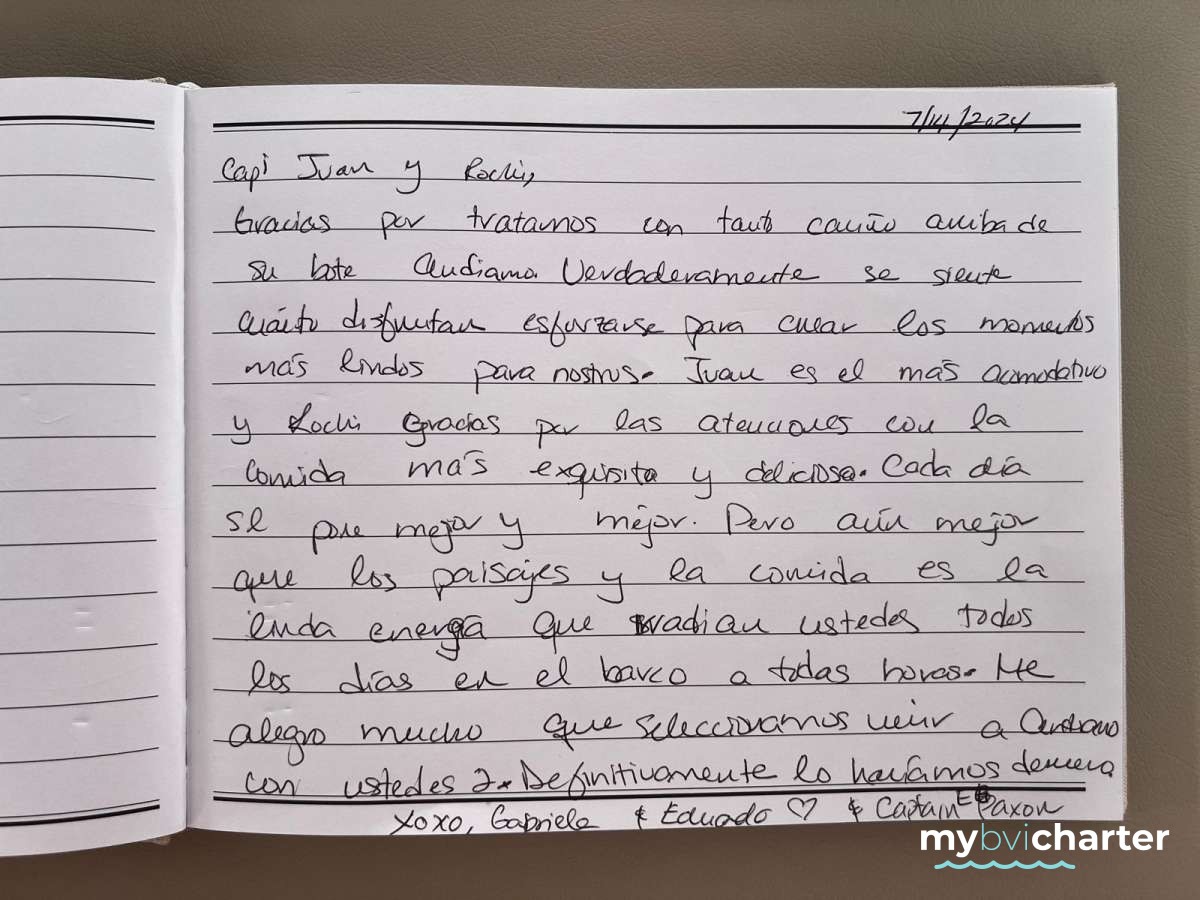 7/14/2024
Capi Juan y Rochi,
Gracias por tratarnos con tanto cariño arriba de
su bote Andiamo. Verdaderamente se siente
cuánto disfrutan esforzarse para crear los momentos
más lindos para nostrus. Juan es el más acomodativo
y Rochi Gracias por las atenciones con la
comida más exquisita y deliciosa. Cada día
se pone mejor y mejor. Pero aún mejor
que los paisajes y la comida es la
linda energía que radian ustedes todos
los días en el barco a todas horas. Me
alegro mucho que seleccionamos venir a Andiamo
con ustedes 2. Definitivamente lo haríamos denuevo
xoxo, Gabriela & Eduardo ♡ & Captain E Paxon
mybvicharter